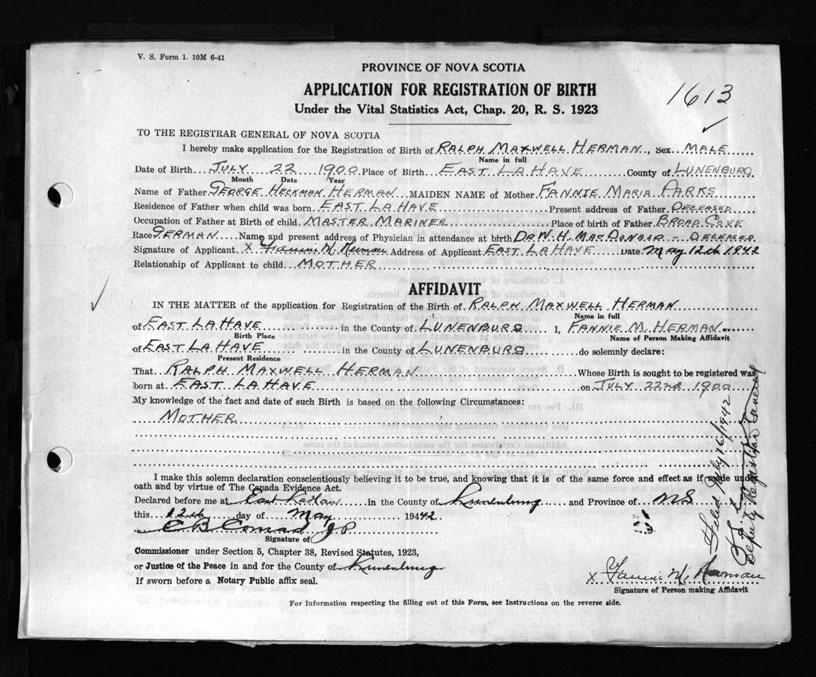 V. S. Form 1. 10M 6-41
PROVINCE OF NOVA SCOTIA
APPLICATION FOR REGISTRATION OF BIRTH
Under the Vital Statistics Act, Chap. 20, R. S. 1923
1613
TO THE REGISTRAR GENERAL OF NOVA SCOTIA
I hereby make application for the Registration of Birth of RALPH MAXWELL HERMAN, Sex MALE
Name in full
Date of Birth JULY 22 1900 Place of Birth EAST LA HAVE County of LUNENBURG
Month Date Year
Name of Father GEORGE HECKMAN HERMAN MAIDEN NAME of Mother FANNIE MARIA PARKS
Residence of Father when child was born EAST LA HAVE Present address of Father DECEASED
Occupation of Father at Birth of child MASTER MARINER Place of birth of Father BROAD COVE
Race GERMAN Name and present address of Physician in attendance at birth DR W. H. MACDONALD - DECEASED
Signature of Applicant X Fannie M. Herman Address of Applicant EAST LA HAVE Date May 12th 1942
Relationship of Applicant to child MOTHER
AFFIDAVIT
IN THE MATTER of the application for Registration of the Birth of RALPH MAXWELL HERMAN
Name in full
of EAST LA HAVE in the County of LUNENBURG I, FANNIE M. HERMAN
Birth Place Name of Person Making Affidavit
of EAST LA HAVE in the County of LUNENBURG do solemnly declare:
Present Residence
That RALPH MAXWELL HERMAN Whose Birth is sought to be registered was
born at EAST LA HAVE on JULY 22nd 1900
My knowledge of the fact and date of such Birth is based on the following Circumstances:
MOTHER
I make this solemn declaration conscientiously believing it to be true, and knowing that it is of the same force and effect as if made under
oath and by virtue of The Canada Evidence Act.
Declared before me at East LaHave in the County of Lunenburg and Province of N.S
this 12th day of May 1942
E B Conrad J P
Signature of
Commissioner under Section 5, Chapter 38, Revised Statutes, 1923,
or Justice of the Peace in and for the County of Lunenburg
If sworn before a Notary Public affix seal.
X Fannie M. Herman
Signature of Person making Affidavit
For Information respecting the filling out of this Form, see Instructions on the reverse side.
Filed July 16/1942
Deputy Registrar General